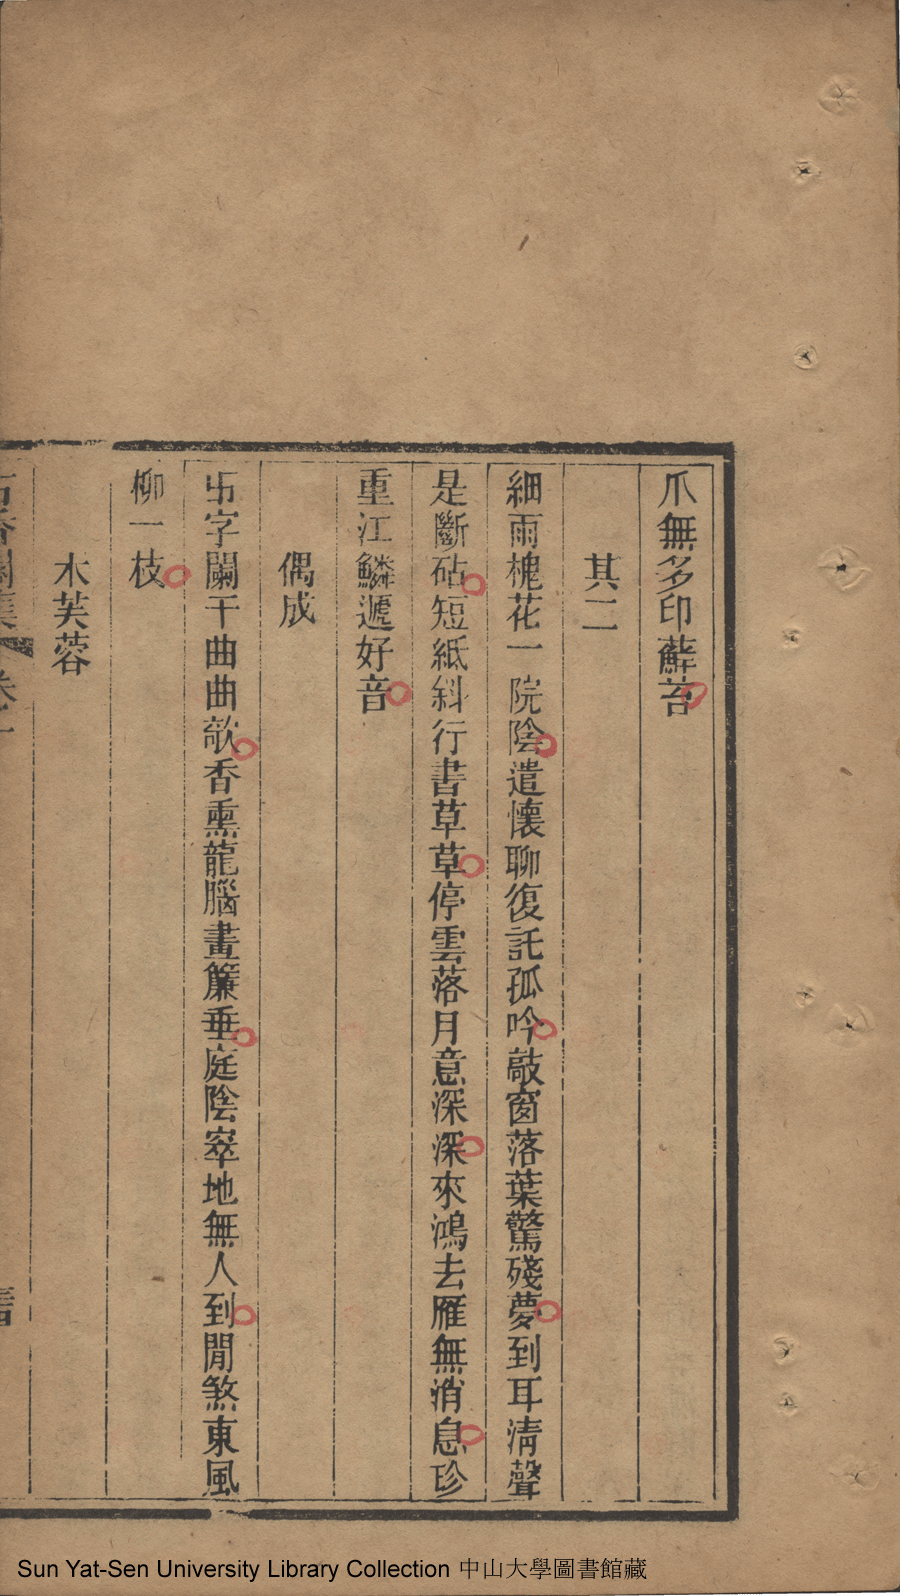 爪無多印蘚苔
其二
細雨槐花一院陰遣懷聊復託孤吟敲窗落葉驚殘夢到耳清聲
是斷砧短紙斜行書草草停雲落月意深深來鴻去雁無消息珍
重江鱗遞好音
偶成
卐字闌干曲曲欹香熏龍腦畫簾垂庭陰窣地無人到閒煞東風
柳一枝
木芙蓉
Sun Yat-Sen University Library Collection 中山大學圖書館藏